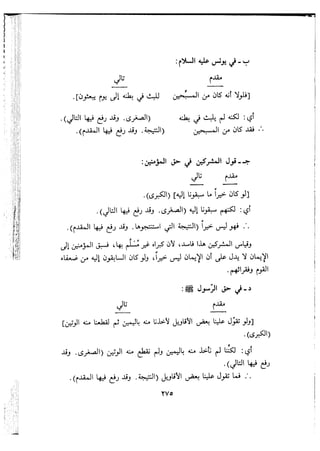 ب - في يونس عليه السلام :
مقدم تالي
[فلولا أنه كان من المسبحين للبث في بطنه إلى يوم يبعثون] .
أي : لكنه لم يلبث في بطنه (الصغرى . وقد رفع فيها التالي) .
∴ فقد كان من المسبحين (النتيجة . وقد رفع فيها المقدم) .
جـ - قول المشركين في حق المؤمنين :
مقدم تالي
[لو كان خيراً ما سبقونا إليه] (الكبرى) .
أي : لكنهم سبقونا إليه (الصغرى . وقد رفع فيها التالي) .
∴ فهو ليس خيراً (النتيجة التي استنتجوها . وقد رفع فيها المقدم) .
وقياس المشركين هذا فاسد ، لأن كبراه غير مُسلَّم بها ، فسبق المؤمنين إلى
الإيمان لا يدل على أن الإيمان ليس خيراً ، ولو كان السابقون إليه من ضعفاء
القوم وفقرائهم .
د - في حق الرسول ﷺ :
مقدم تالي
[ولو تقوّل علينا بعض الأقاويل لأخذنا منه باليمين ثم لقطعنا منه الوتين]
(الكبرى) .
أي : لكنّا لم نأخذ منه باليمين ولم نقطع منه الوتين (الصغرى . وقد
رفع فيها التالي) .
∴ فما تقول علينا بعض الأقاويل (النتيجة . وقد رفع فيها المقدم) .
٢٧٥